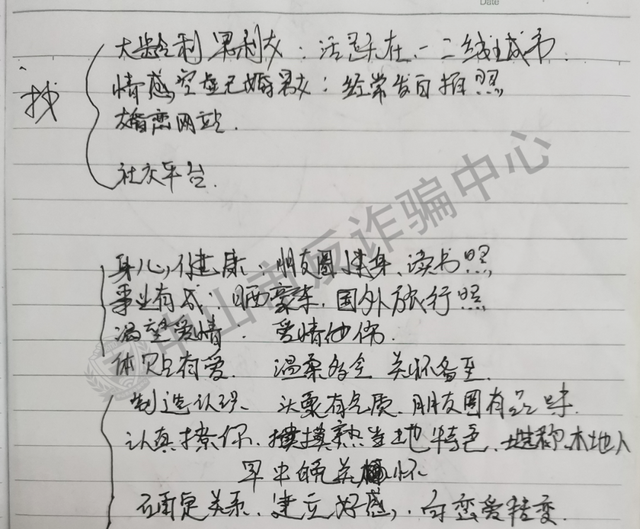 Date
找
大龄剩男剩女：活跃在一二线城市
情感空虚已婚男女：经常发自拍照
婚恋网站
社交平台
身心健康：朋友圈健身、读书照
事业有成：晒豪车，国外旅行照
渴望爱情：爱情
体贴有爱 温柔 关怀备至
制造认识 头像有气质，朋友圈有品味
认真撩你，摸熟当地特色，谎称本地人
早中晚关怀
确定关系，建立好感，向恋爱转变
中山市反诈骗中心